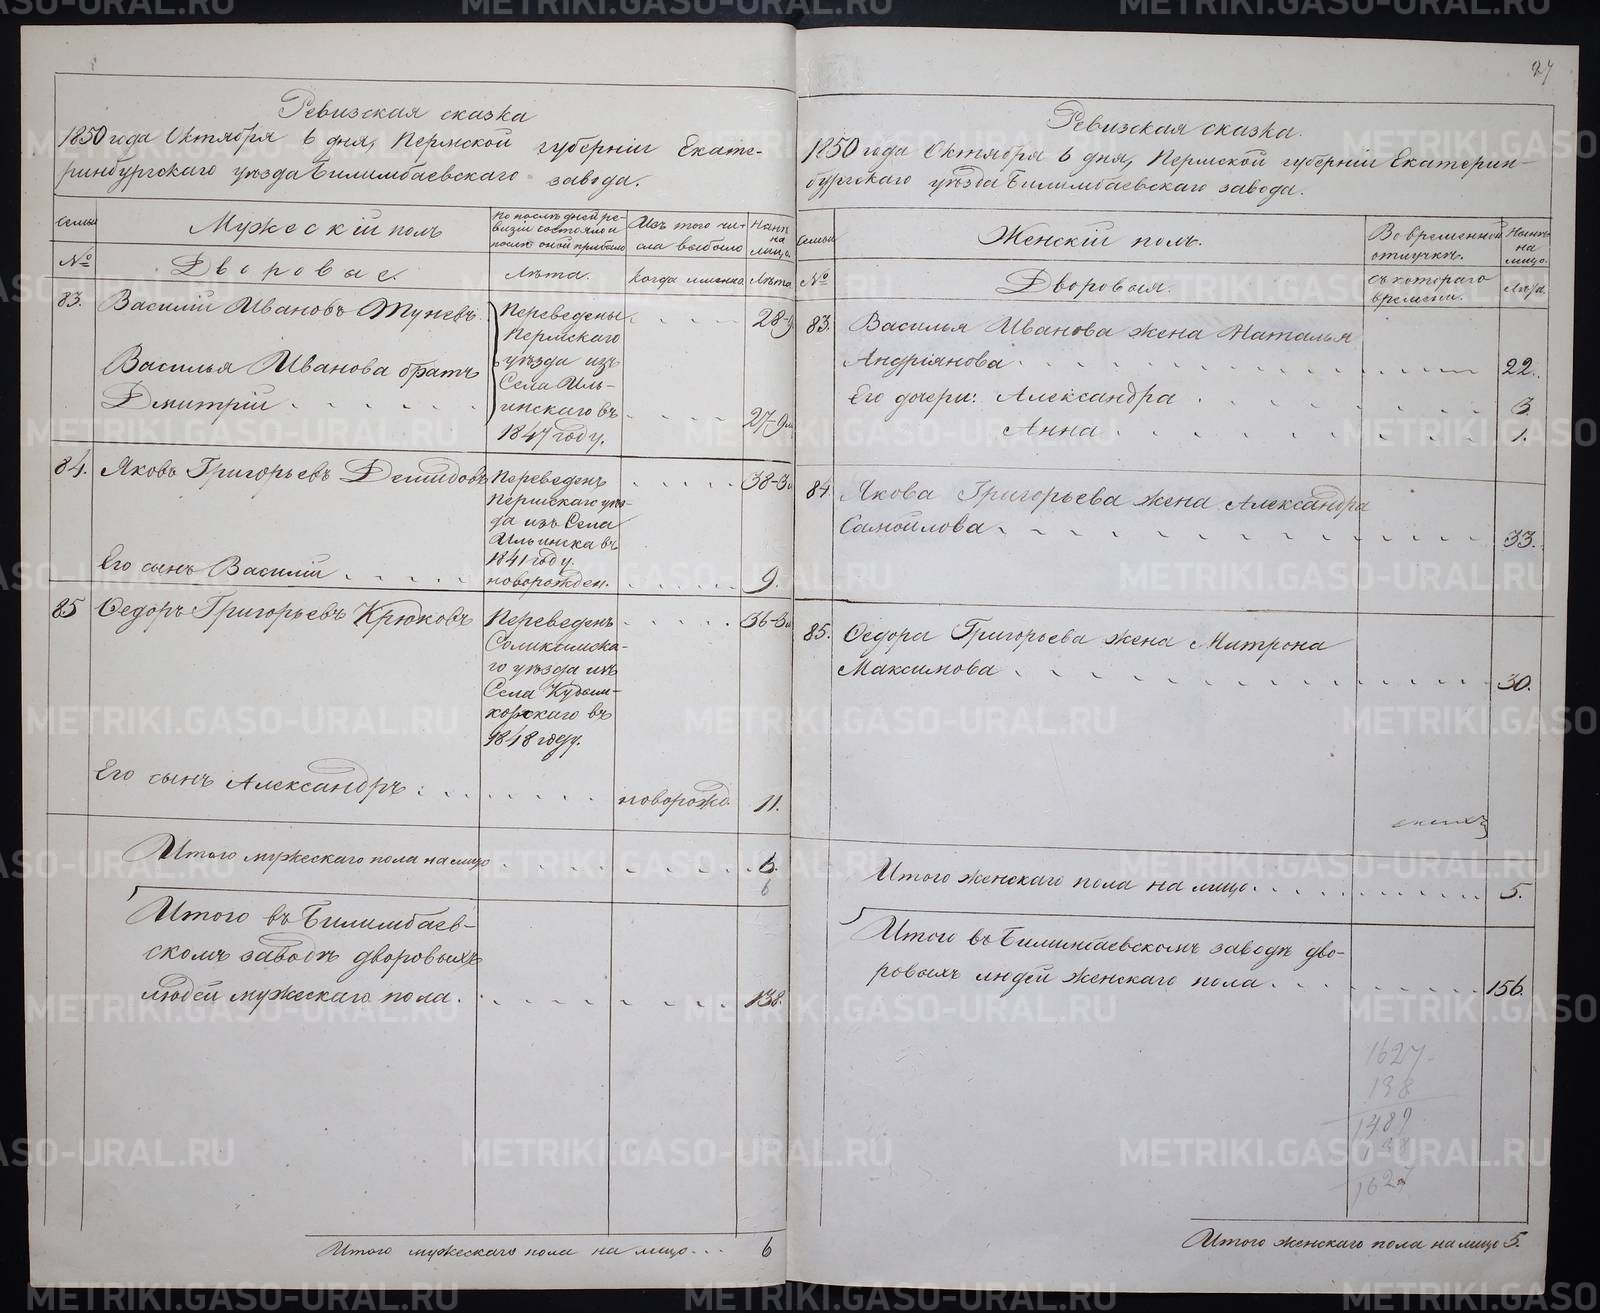 Ревизская сказка
1850 года Октября 6 дня, Пермской губернiи Екате-
ринбургскаго уѣзда Билимбаевскаго завода.
семьи
Мужескiй полъ
По послѣдней ре-
визiи состояло и
послѣ оной прибыло
Изъ того чи-
сла выбыло
Нынѣ
на
лицо.
№
Дворовые.
Лѣта.
Когда именно
Лѣта
83. Василiй Ивановъ Туневъ.
Переведены
Пермскаго
уѣзда изъ
Села Иль-
инскаго въ
1847 году.
28-9
Василья Иванова братъ
Дмитрiй
27-9м
84. Яковъ Григорьевъ Демидовъ
Переведенъ
Пермскаго уѣз-
да изъ Села
Ильинска въ
1841 году.
38-3м
Его сынъ Василiй
новорожден.
9.
85 Ѳедоръ Григорьевъ Крюковъ
Переведенъ
Соликамска-
го уѣзда изъ
Села Кудым-
корскаго въ
1848 году.
36-3м
Его сынъ Александръ
новорожд.
11.
Итого мужескаго пола на лицо
6.
6
Итого въ Билимбаев-
скомъ заводѣ дворовыхъ
людей мужескаго пола.
138.
Итого мужескаго пола на лицо 6
27
Ревизская сказка.
1850 года Октября 6 дня, Пермской губернiи Екатерин-
бургскаго уѣзда Билимбаевскаго завода.
семьи
Женскiй полъ.
Во временной
отлучкѣ.
Нынѣ
на
лицо.
№
Дворовыя.
съ котораго
времени.
Лѣта.
83. Василья Иванова жена Наталья
Андрiянова
22.
Его дочери: Александра
3.
Анна
1.
84. Якова Григорьева жена Александра
Самойлова
33.
85. Ѳедора Григорьева жена Матрона
Максимова
30.
Итого женскаго пола на лицо.
5.
Итого въ Билимбаевскомъ заводѣ дво-
ровыхъ людей женскаго пола.
156.
1627
138
1489
138
1627
Итого женскаго пола на лицо 5.
METRIKI.GASO-URAL.RU